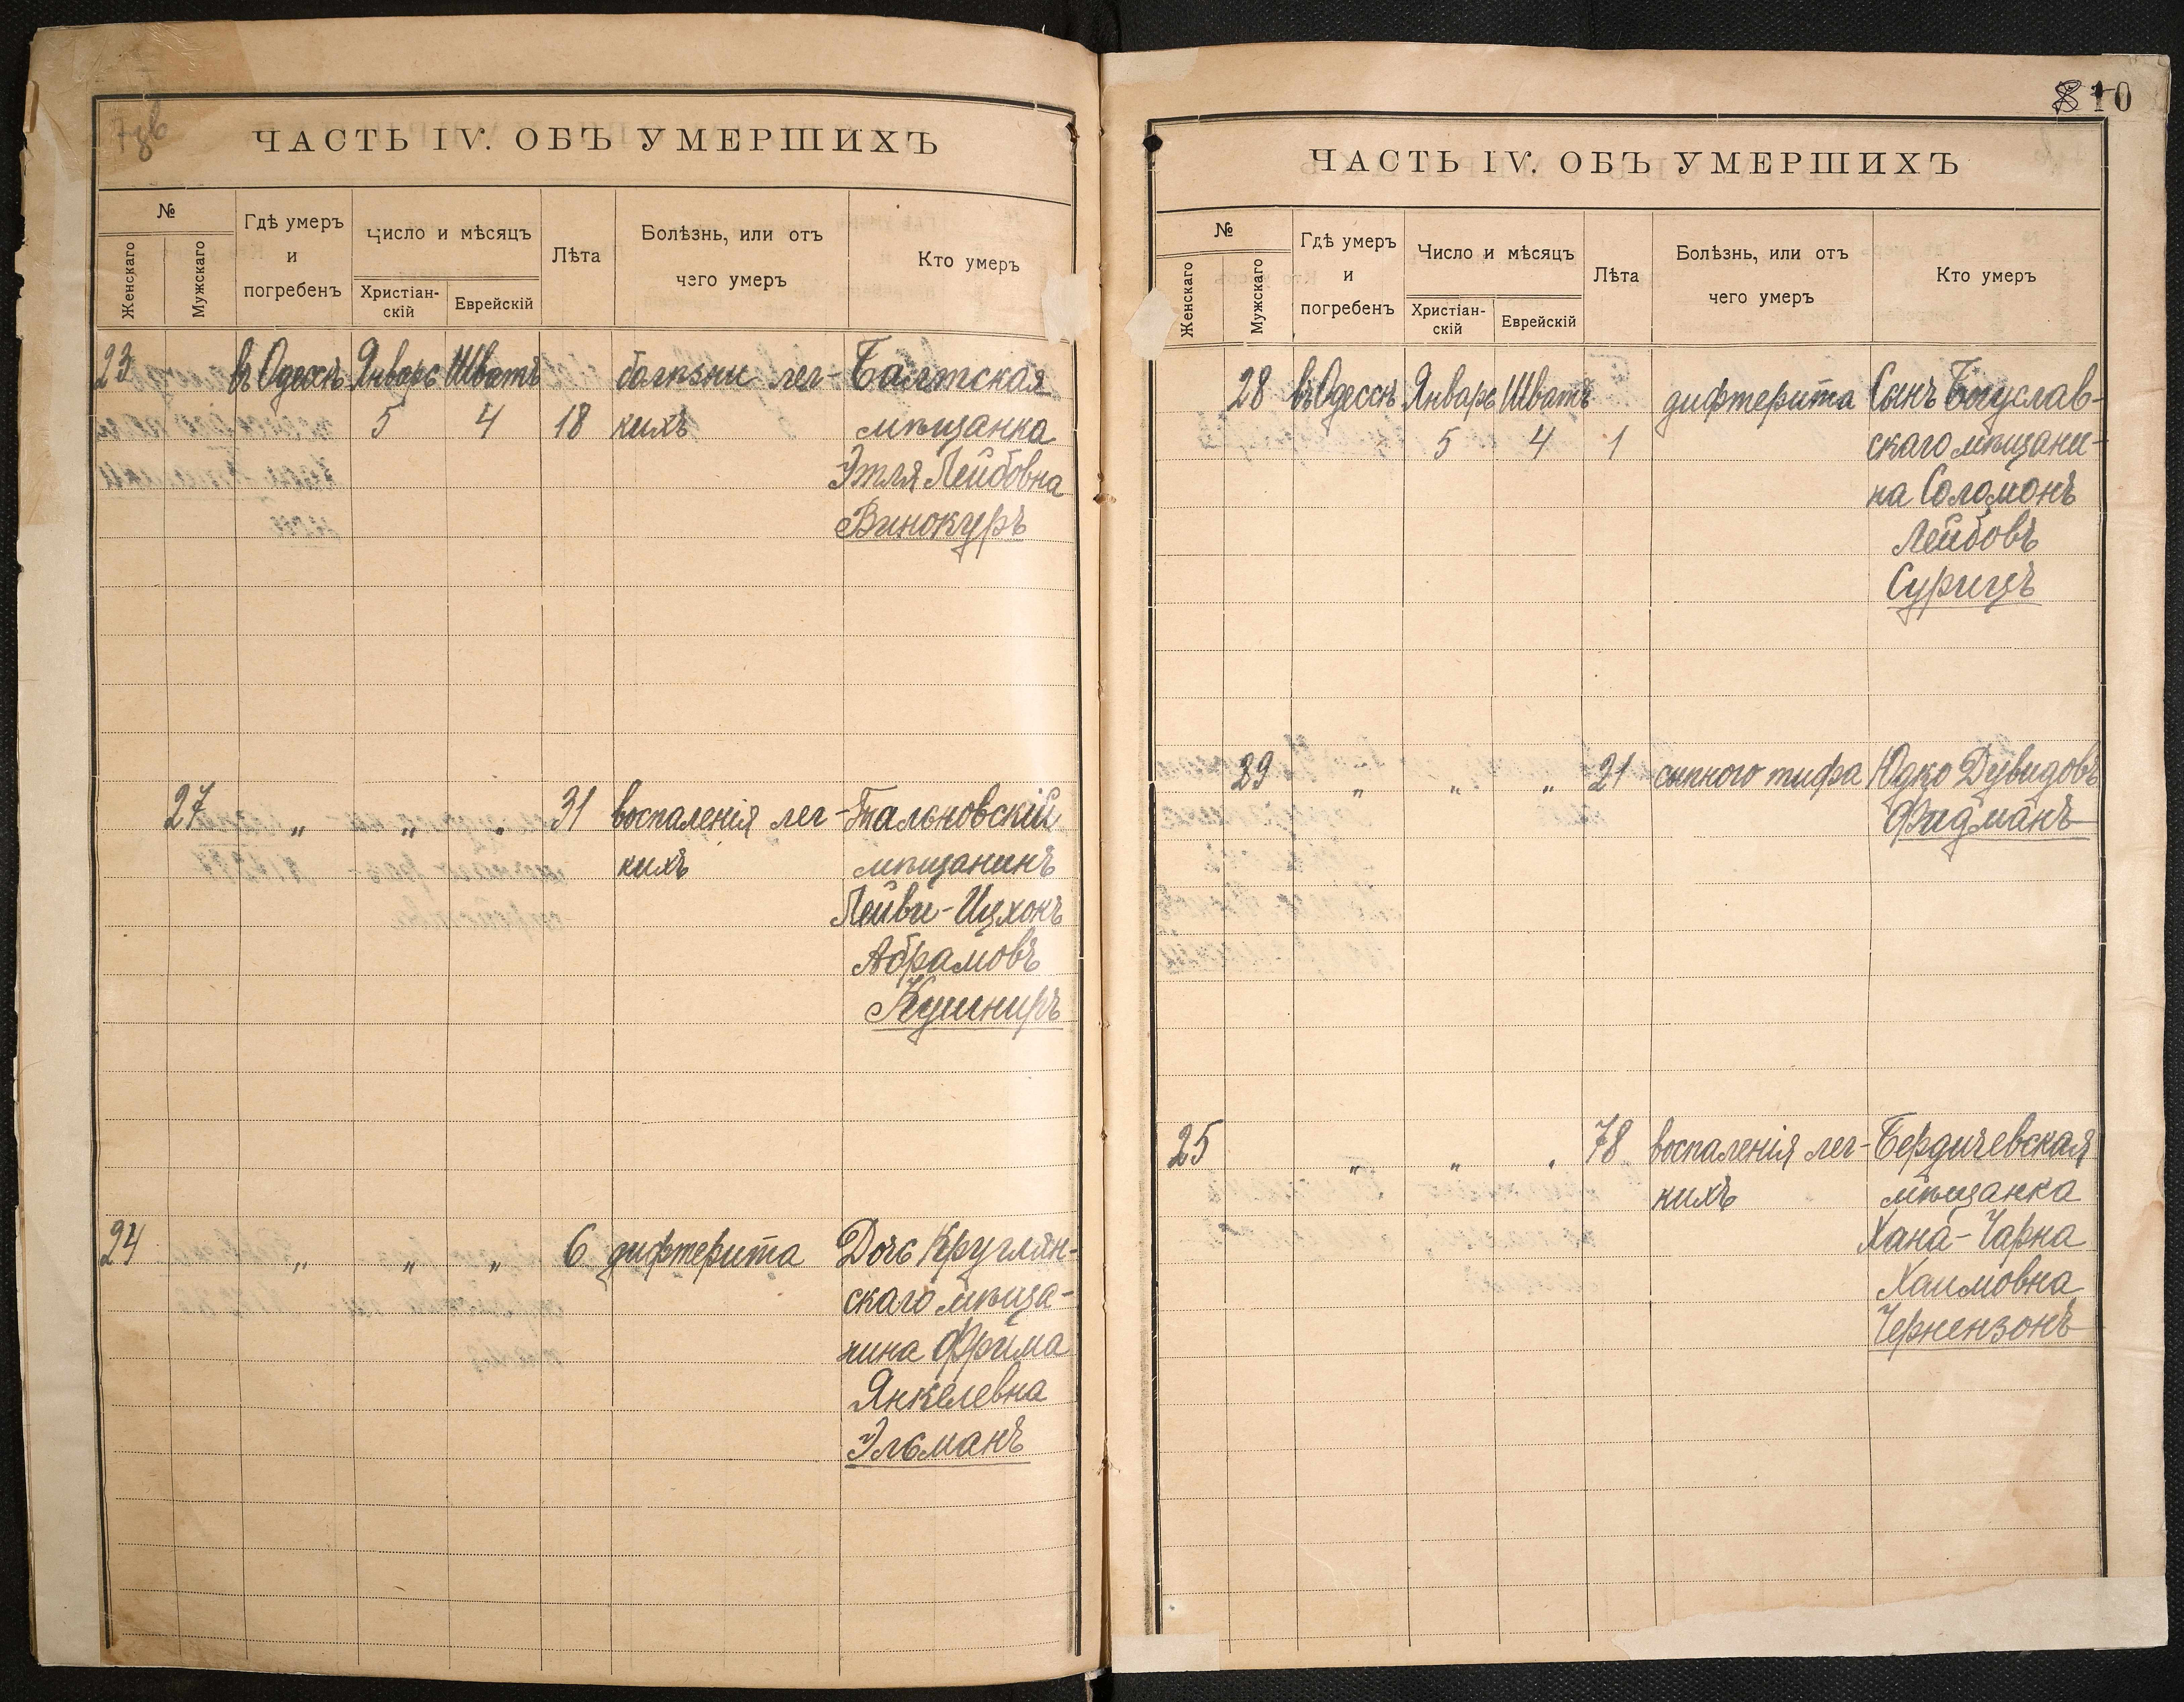 ЧАСТЬ IV. ОБЪ УМЕРШИХЪ
№
Женскаго
Мужскаго
Гдѣ умеръ
и
погребенъ
Число и мѣсяцъ
Христіан-
скій
Еврейскій
Лѣта
Болѣзнь, или отъ
чего умеръ
Кто умеръ
23 въ Одессѣ Январь Шватъ болѣзни лег- Балтская
5 4 18 кихъ мѣщанка
Этля Лейбовна
Винокуръ
27 „ „ „ 31 воспаленія лег- Тальновскій
кихъ мѣщанинъ
Лейви-Ицхокъ
Абрамовъ
Кушниръ
24 „ „ „ 6 дифтерита Дочь Круглян-
скаго мѣща-
нина Фрима
Янкелевна
Эльманъ
10
ЧАСТЬ IV. ОБЪ УМЕРШИХЪ
№
Женскаго
Мужскаго
Гдѣ умеръ
и
погребенъ
Число и мѣсяцъ
Христіан-
скій
Еврейскій
Лѣта
Болѣзнь, или отъ
чего умеръ
Кто умеръ
28 въ Одессѣ Январь Шватъ дифтерита Сынъ Богуслав-
5 4 1 скаго мѣщани-
на Соломонъ
Лейбовъ
Сурицъ
29 „ „ „ 21 сыпного тифа Юдко Дувидовъ
Фидманъ
25 „ „ „ 78 воспаленія лег- Бердичевская
кихъ мѣщанка
Хана-Чарна
Хаимовна
Черкензонъ